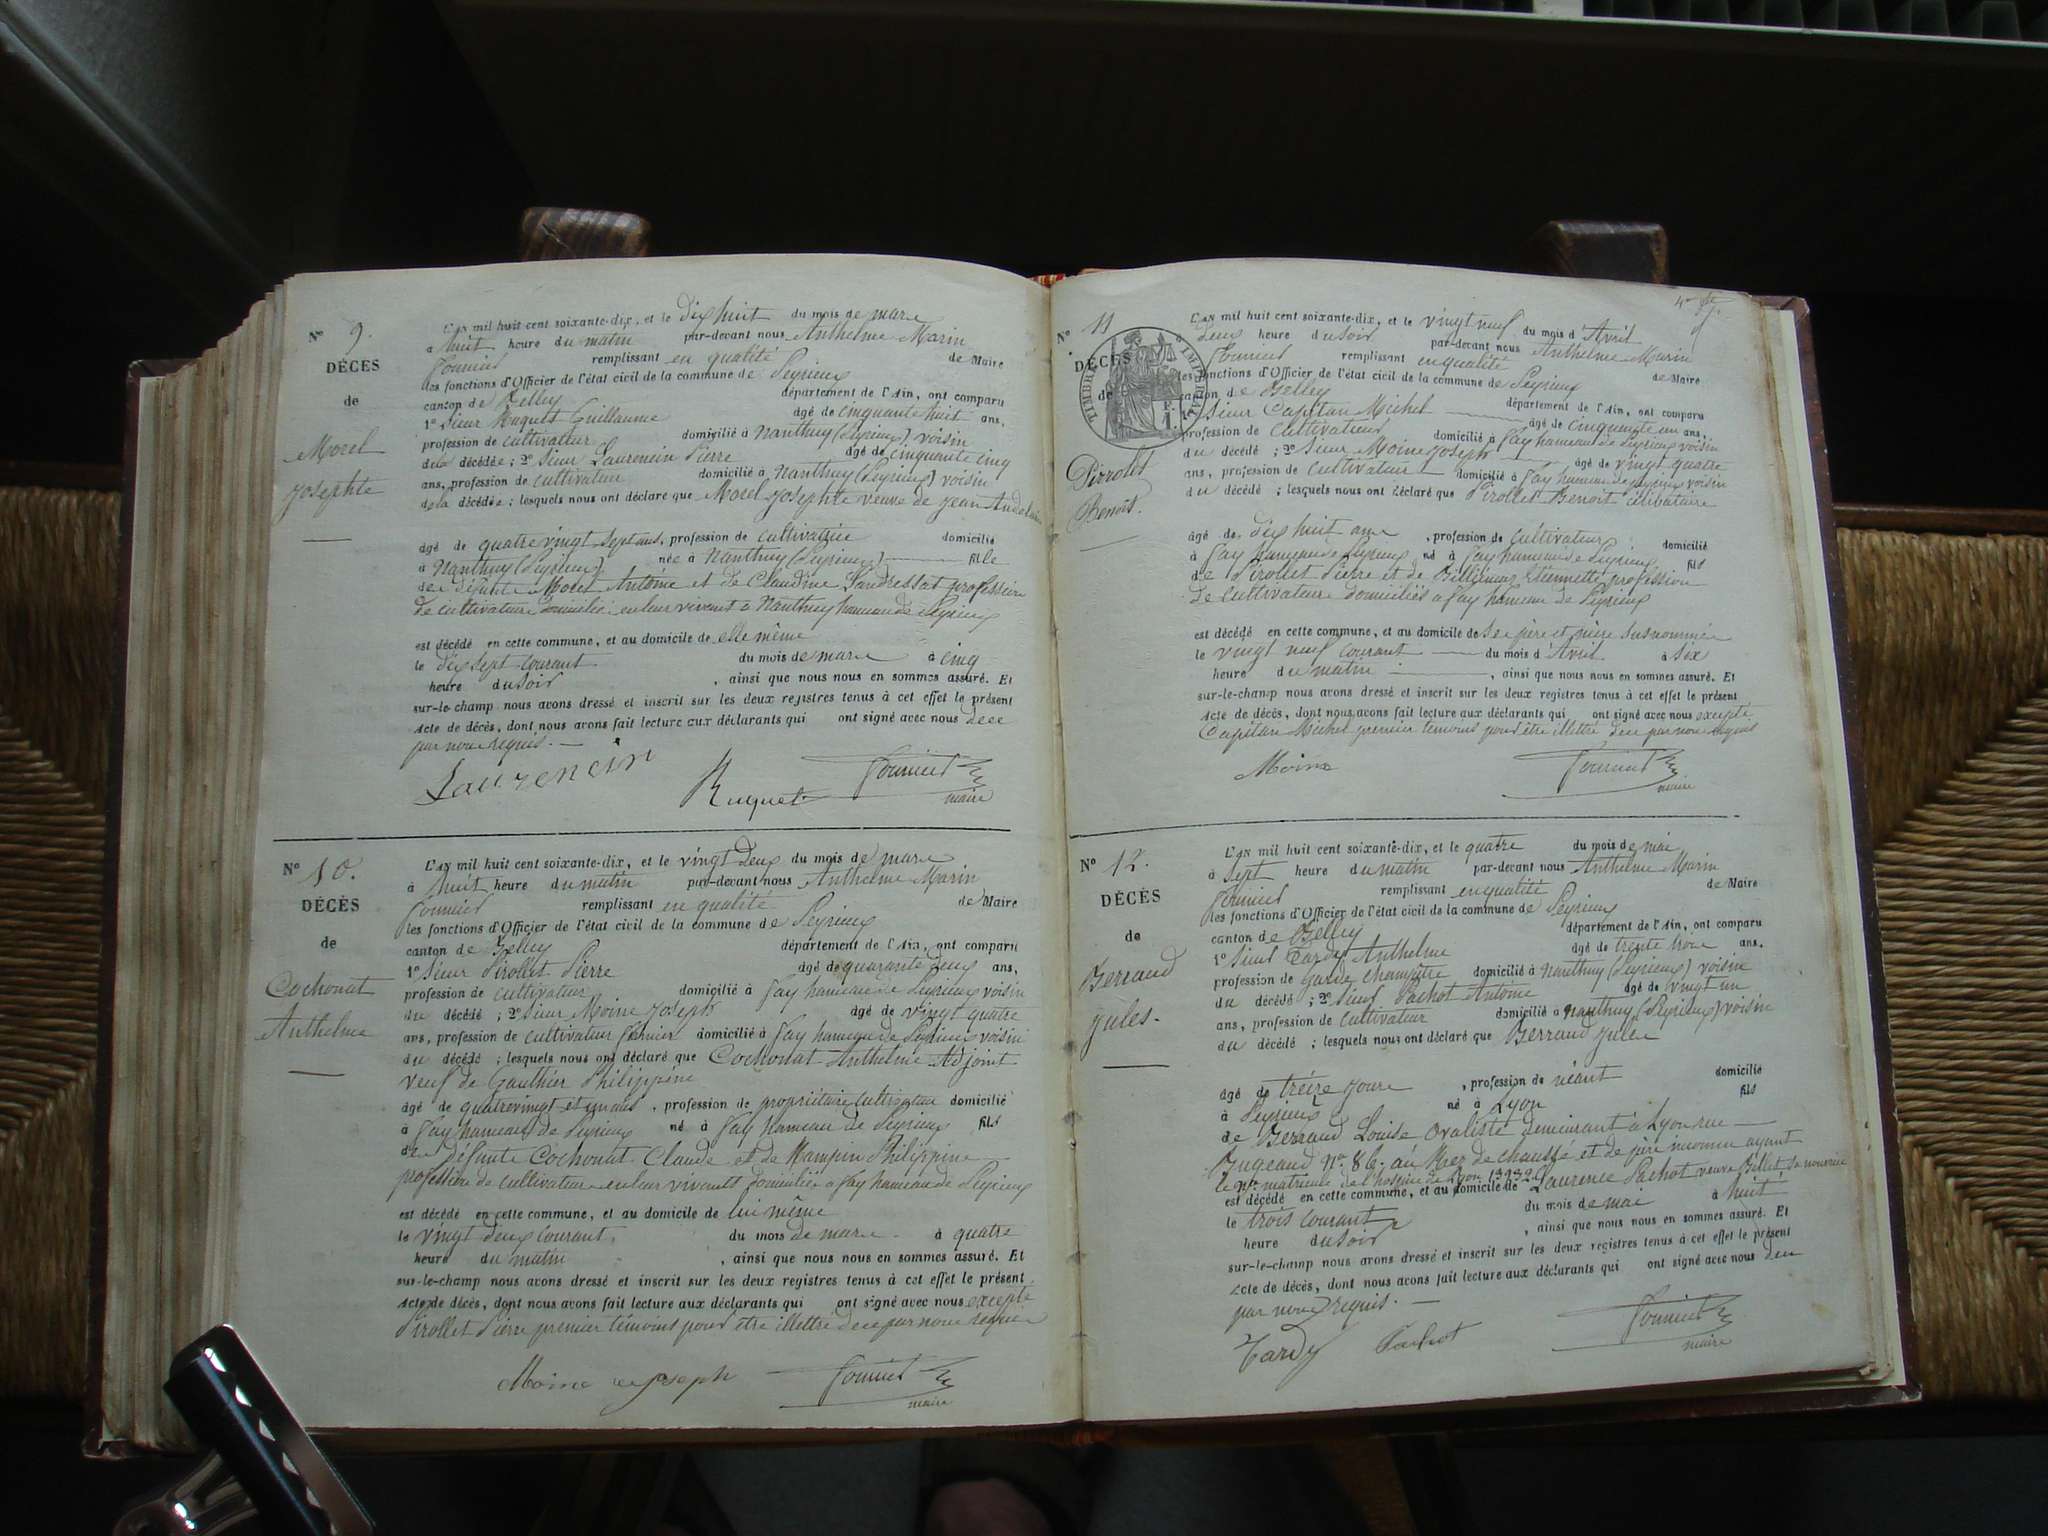 N° 9.
DÉCÈS
de
Morel
Josephte
L'an mil huit cent soixante-dix, et le dix huit du mois de mars
à huit heure du matin par-devant nous Anthelme Marin
Fournier remplissant en qualité de Maire
les fonctions d'Officier de l'état civil de la commune de Peyrieux
canton de Belley département de l'Ain, ont comparu
1° Sieur Huguet Guillaume âgé de cinquante huit ans,
profession de cultivateur domicilié à Nanthuy (Peyrieux) voisin
de la décédée ; 2° Sieur Laurencin Pierre âgé de cinquante cinq
ans, profession de cultivateur domicilié à Nanthuy (Peyrieux) voisin
de la décédée ; lesquels nous ont déclaré que Morel Josephte veuve de Jean
âgé de quatre vingt sept ans, profession de cultivatrice domicilié
à Nanthuy (Peyrieux) née à Nanthuy (Peyrieux) fille
de défunts Morel Antoine et de Claudine profession
de cultivateurs domiciliés en leur vivant à Nanthuy hameau de Peyrieux
est décédé en cette commune, et au domicile de elle même
le dix sept courant du mois de mars à cinq
heure du soir , ainsi que nous nous en sommes assuré. Et
sur-le-champ nous avons dressé et inscrit sur les deux registres tenus à cet effet le présent
acte de décès, dont nous avons fait lecture aux déclarants qui ont signé avec nous de ce
par nous requis. —
Laurencin Huguet Fournier
maire
N° 10.
DÉCÈS
de
Cochonat
Anthelme
L'an mil huit cent soixante-dix, et le vingt deux du mois de mars
à huit heure du matin par-devant nous Anthelme Marin
Fournier remplissant en qualité de Maire
les fonctions d'Officier de l'état civil de la commune de Peyrieux
canton de Belley département de l'Ain, ont comparu
1° Sieur Pirollet Pierre âgé de quarante deux ans,
profession de cultivateur domicilié à Fay hameau de Peyrieux voisin
du décédé ; 2° Sieur Moine Joseph âgé de vingt quatre
ans, profession de cultivateur fermier domicilié à Fay hameau de Peyrieux voisin
du décédé ; lesquels nous ont déclaré que Cochonat Anthelme Adjoint
veuf de Gauthier Philippine
âgé de quatrevingt et un ans, profession de propriétaire cultivateur domicilié
à Fay hameau de Peyrieux né à Fay hameau de Peyrieux fils
de défunts Cochonat Claude et de Philippine
profession de cultivateurs en leur vivant domiciliés à Fay hameau de Peyrieux
est décédé en cette commune, et au domicile de lui même
le vingt deux courant du mois de mars à quatre
heure du matin , ainsi que nous nous en sommes assuré. Et
sur-le-champ nous avons dressé et inscrit sur les deux registres tenus à cet effet le présent
acte de décès, dont nous avons fait lecture aux déclarants qui ont signé avec nous excepté
Pirollet Pierre premier témoins pour être illettré de ce par nous requis
Moine joseph Fournier
maire
N° 11
DÉCÈS
de
TIMBRE IMPERIAL
Pirrolet
Benoit.
L'an mil huit cent soixante-dix, et le vingt neuf du mois d'Avril
deux heure du soir par-devant nous Anthelme Marin
Fournier remplissant en qualité de Maire
les fonctions d'Officier de l'état civil de la commune de Peyrieux
canton de Belley département de l'Ain, ont comparu
1° Sieur Capitan Michel âgé de cinquante un ans,
profession de cultivateur domicilié à Fay hameau de Peyrieux voisin
du décédé ; 2° Sieur Moine Joseph âgé de vingt quatre
ans, profession de cultivateur domicilié à Fay hameau de Peyrieux voisin
du décédé ; lesquels nous ont déclaré que Pirollet Benoit célibataire
âgé de dix huit ans , profession de cultivateur domicilié
à Fay hameau de Peyrieux né à Fay hameau de Peyrieux fils
de Pirollet Pierre et de Etiennette profession
de cultivateurs domiciliés à Fay hameau de Peyrieux
est décédé en cette commune, et au domicile de ses père et mère susnommés
le vingt neuf courant du mois d'Avril à six
heure du matin , ainsi que nous nous en sommes assuré. Et
sur-le-champ nous avons dressé et inscrit sur les deux registres tenus à cet effet le présent
acte de décès, dont nous avons fait lecture aux déclarants qui ont signé avec nous excepté
Capitan Michel premier témoins pour être illettré de ce par nous requis
Moine Fournier
maire
N° 12.
DÉCÈS
de
Berraud
Jules.
L'an mil huit cent soixante-dix, et le quatre du mois de mai
à sept heure du matin par-devant nous Anthelme Marin
Fournier remplissant en qualité de Maire
les fonctions d'Officier de l'état civil de la commune de Peyrieux
canton de Belley département de l'Ain, ont comparu
1° Sieur Tardy Anthelme âgé de trente trois ans,
profession de Garde champêtre domicilié à Nanthuy (Peyrieux) voisin
du décédé ; 2° Sieur Pachot Antoine âgé de vingt un
ans, profession de cultivateur domicilié à Nanthuy (Peyrieux) voisin
du décédé ; lesquels nous ont déclaré que Berraud Jules
âgé de treize jours , profession de néant domicilié
à Peyrieux né à Lyon fils
de Berraud Louise Ovaliste demeurant à Lyon rue
Bugeaud n° 86 au Rez de chaussé et de père inconnu ayant
le n° matricule de l'hospice de Lyon
est décédé en cette commune, et au domicile de Laurence Pachot veuve Billet, sa nourrice
le trois courant du mois de mai à huit
heure du soir , ainsi que nous nous en sommes assuré. Et
sur-le-champ nous avons dressé et inscrit sur les deux registres tenus à cet effet le présent
acte de décès, dont nous avons fait lecture aux déclarants qui ont signé avec nous de ce
par nous requis. —
Tardy Pachot Fournier
maire